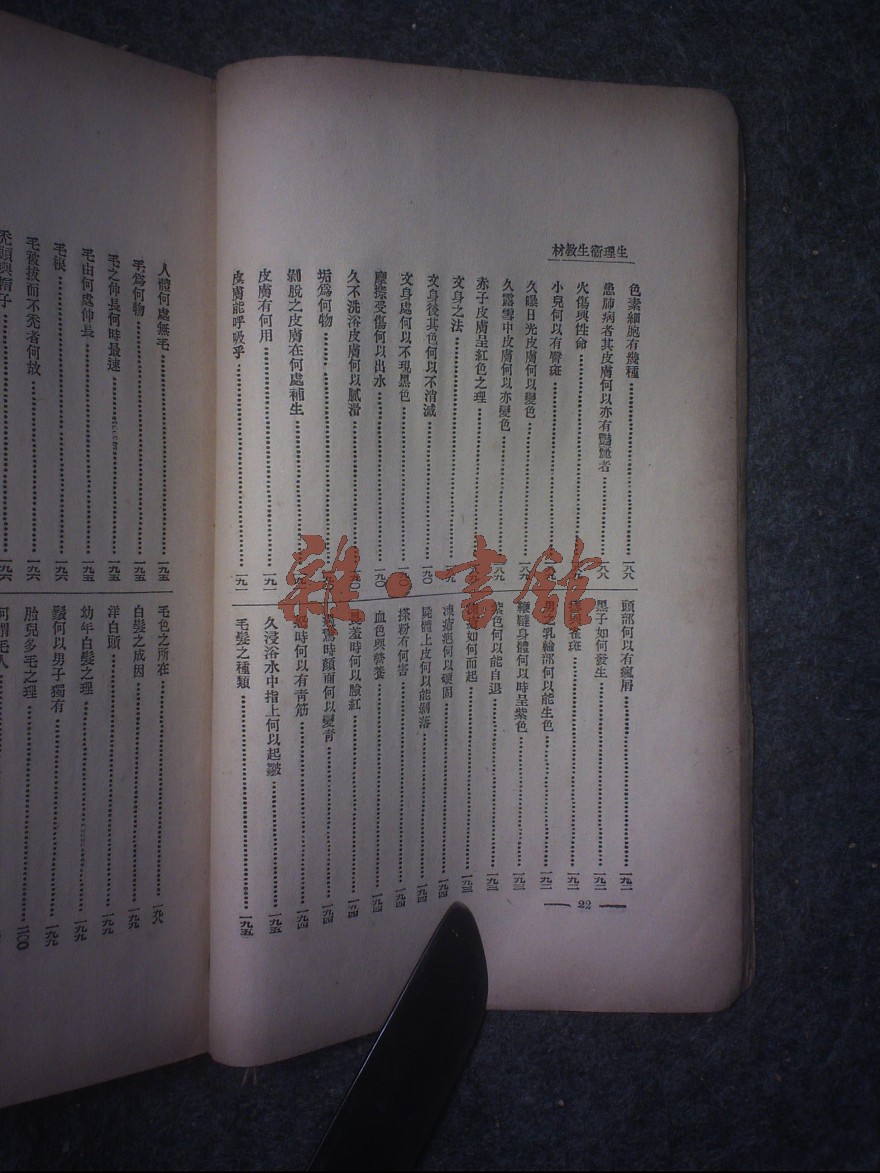 生理衞生教材
色素細胞有幾種……一八八
患肺病者其皮膚何以亦有豔麗者……一八八
火傷與性命
小兒何以有臀斑
久曝日光皮膚何以變色……一八九
久露雪中皮膚何以亦變色……一八九
赤子皮膚呈紅色之理
文身之法
文身後其色何以不消滅……一九〇
文身處何以不現黑色……一九〇
摩擦受傷何以出水
久不洗浴皮膚何以膩滑
垢爲何物
剝脫之皮膚在何處補生
皮膚有何用……一九一
皮膚能呼吸乎……一九一
頭部何以有瘋屑……一九二
黑子如何發生……一九二
雀斑……一九二
乳輪部何以能生色……一九二
鞭韃身體何以時呈紫色……一九三
紫色何以能自退……一九三
如何而起……一九三
凍瘡疤何以硬固……一九四
屍體上皮何以能剝落……一九四
搽粉有何害……一九四
血色與營養……一九四
羞時何以臉紅……一九四
驚時顏面何以變青……一九四
時何以有青筋……一九四
久浸浴水中指上何以起皺……一九五
毛髮之種類……一九五
22
人體何處無毛……一九五
毛爲何物……一九五
毛之伸長何時最速……一九五
毛由何處伸長……一九五
毛根……一九六
毛被拔而不禿者何故……一九六
禿頭與帽子……一九六
毛色之所在……一九八
白髮之成因……一九九
洋白頭……一九九
幼年白髮之理……一九九
鬚何以男子獨有……一九九
胎兒多毛之理……二〇〇
何謂毛人
雜·書館